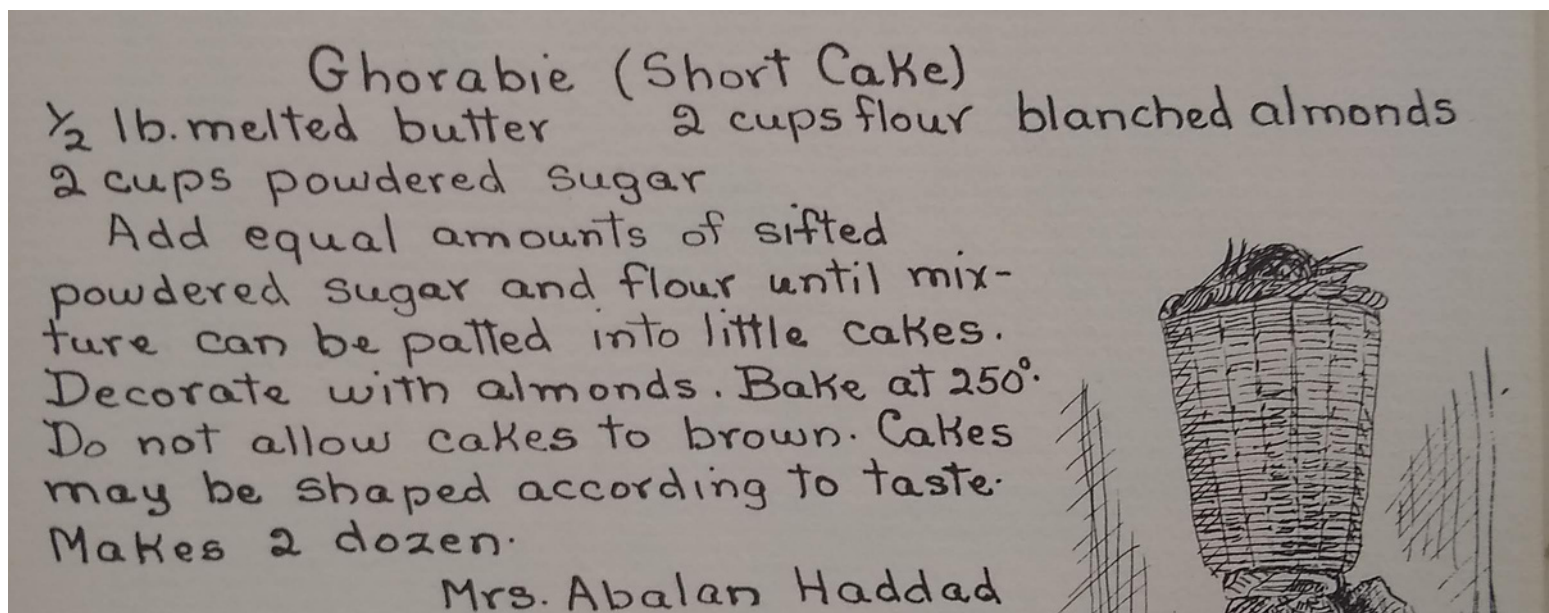 Ghorabie (Short Cake)
½ lb. melted butter 2 cups flour blanched almonds
2 cups powdered sugar
Add equal amounts of sifted
powdered sugar and flour until mix-
ture can be patted into little cakes.
Decorate with almonds. Bake at 250°.
Do not allow cakes to brown. Cakes
may be shaped according to taste.
Makes 2 dozen.
Mrs. Abalan Haddad